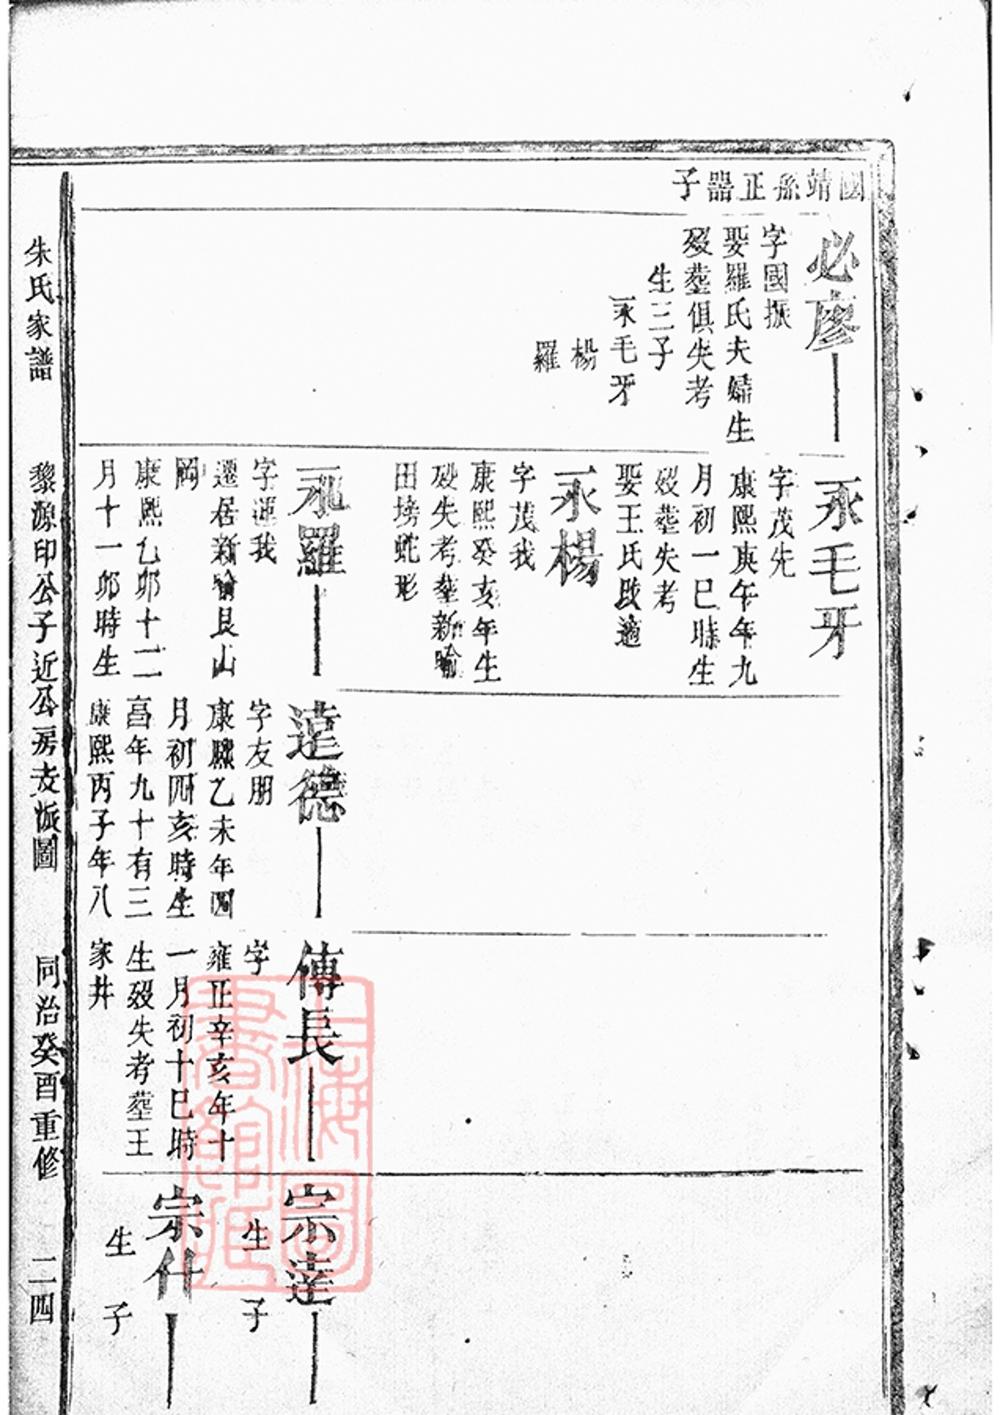 國靖孫正器子
必廖
字國振
娶羅氏夫婦生
歿塟俱失考
生三子
永毛牙
楊
羅
永毛牙
字茂先
康熙庚午年九
月初一巳時生
歿塟失考
娶王氏改適
永楊
字茂我
康熙癸亥年生
歿失考塟新喻
田塝蛇形
永羅
字運我
遷居新喻艮山
岡
康熙乙卯十二
月十一卯時生
達德
字友朋
康熙乙未年四
月初四亥時生
高年九十有三
康熙丙子年八
傳長
字
雍正辛亥年十
一月初十巳時
生歿失考塟王
家井
宗達
生 子
宗什
生 子
朱氏家譜
黎源印公子近公房支派圖
同治癸酉重修
二四
上海圖書館藏